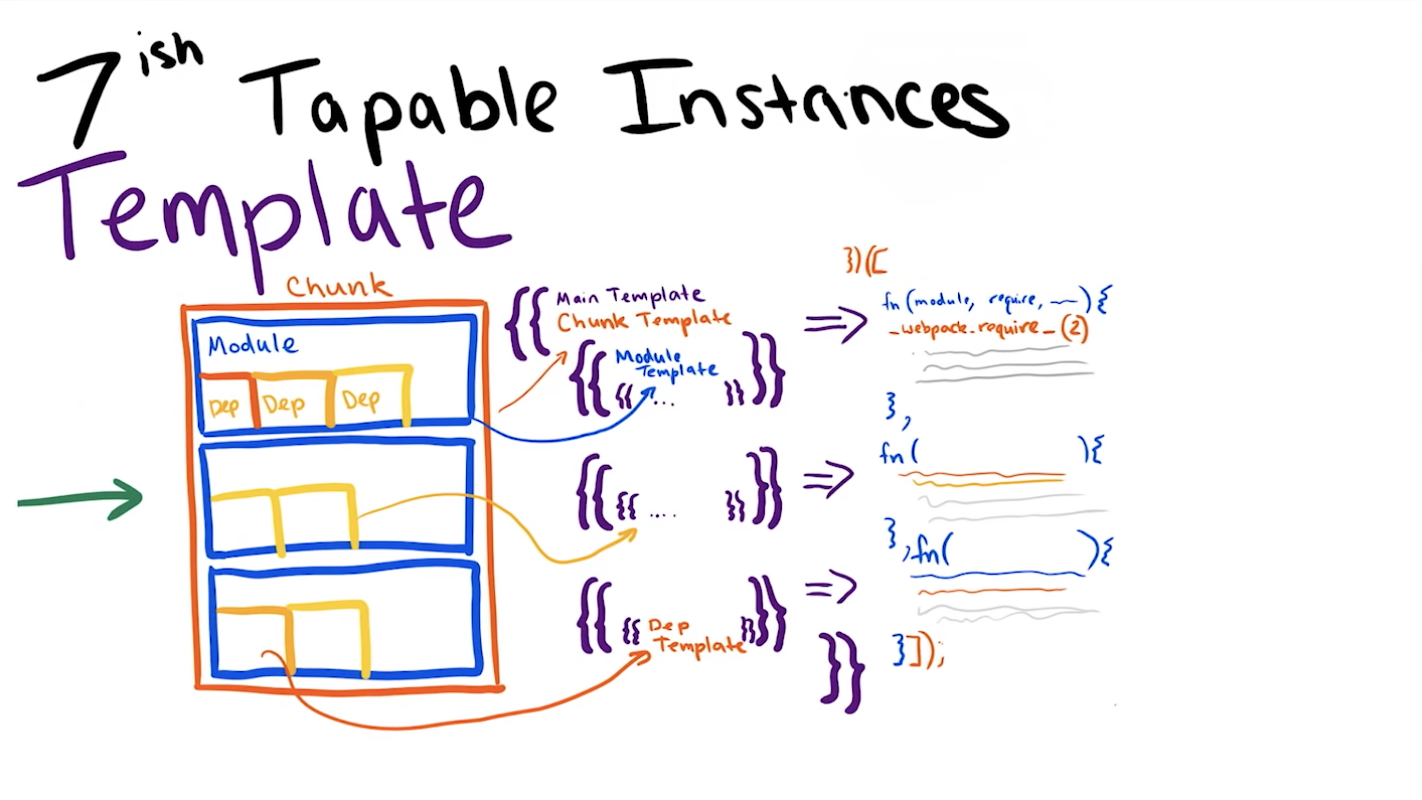 7ish Tapable Instances
Template
Chunk
Module
Dep Dep Dep
{{ Main Template
Chunk Template
{{ Module
Template
{{ ... }} }}
{{ {{ .... }} }}
{{ {{ Dep
Template }} }}
}}
=>
=>
=>
})([
fn(module, require, __){
_webpack_require_(2)
},
fn( ){
},fn( ){
}]);